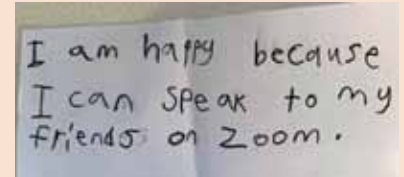 I am happy because
I can speak to my
friends on Zoom.